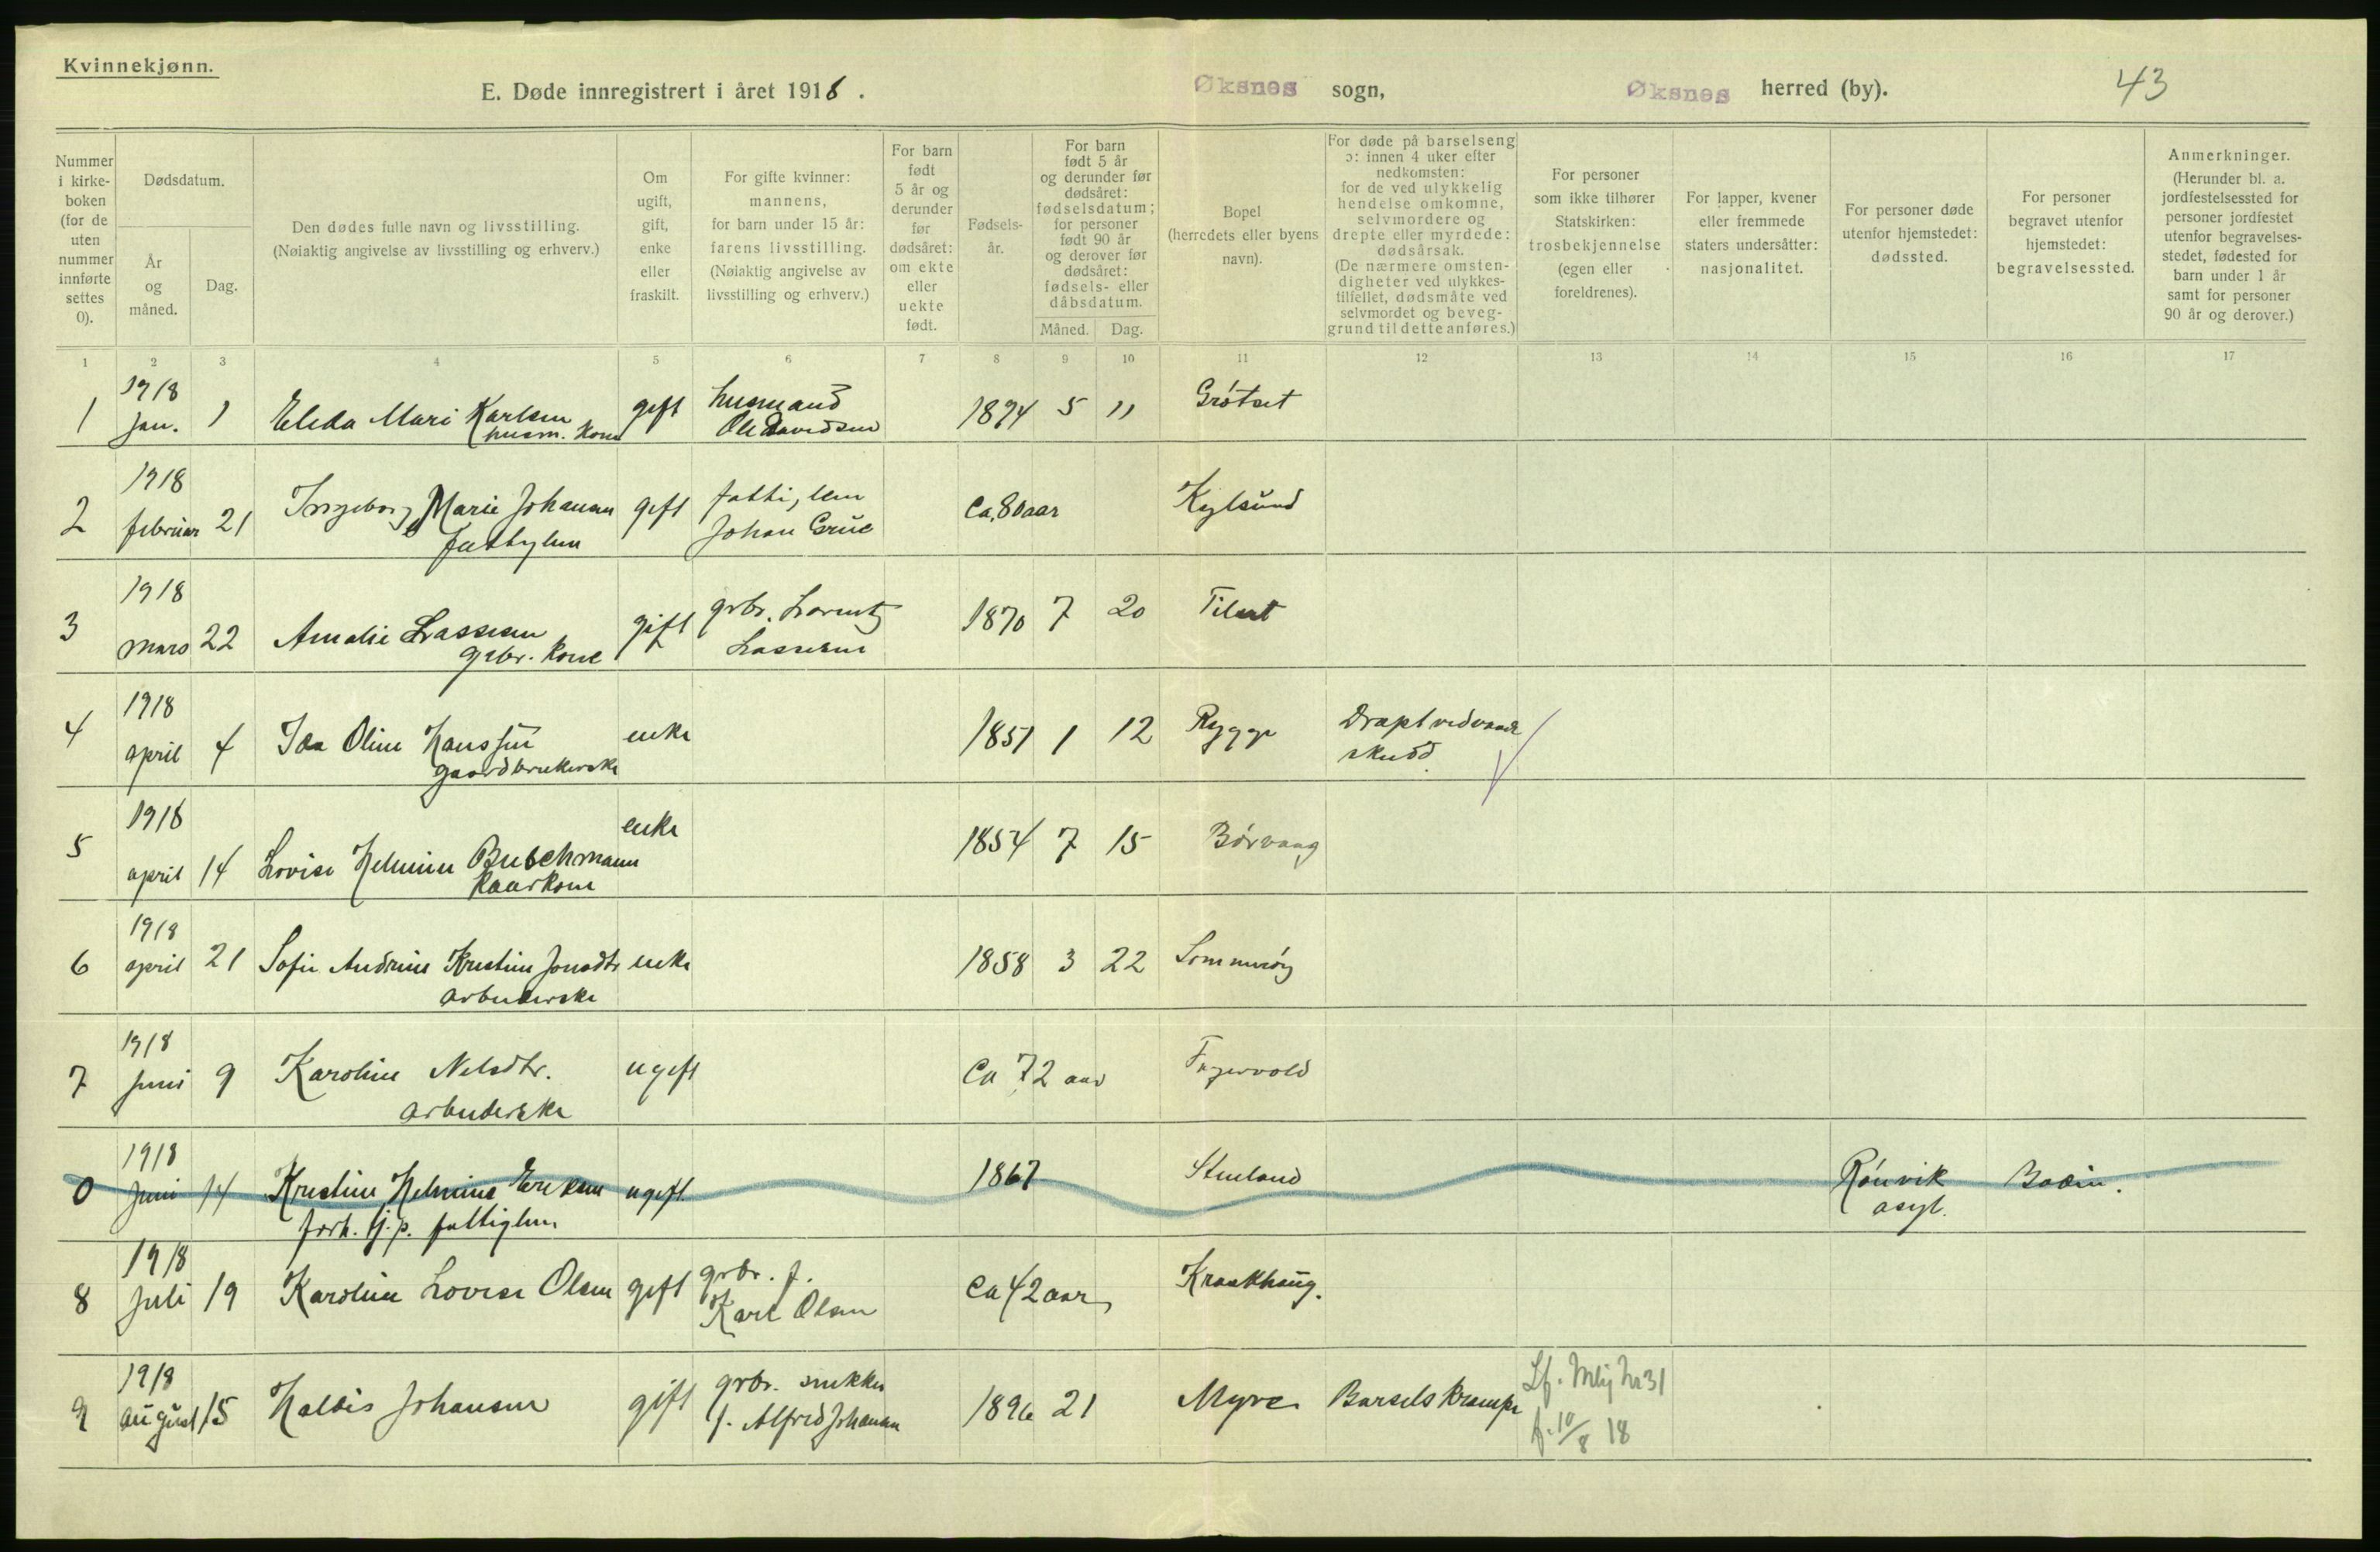 Kvinnekjønn.
E. Døde innregistrert i året 1918.
Øksnes sogn,
Øksnes herred (by).
43
Nummer i kirke-boken (for de uten nummer innførte settes 0).
Dødsdatum.
År og måned.
Dag.
Den dødes fulle navn og livsstilling.
(Nøiaktig angivelse av livsstilling og erhverv.)
Om ugift, gift, enke eller fraskilt.
For gifte kvinner: mannens, for barn under 15 år: farens livsstilling. (Nøiaktig angivelse av livsstilling og erhverv.)
For barn født 5 år og derunder før dødsåret: om ekte eller uekte født.
Fødsels-år.
For barn født 5 år og derunder før dødsåret: fødselsdatum; for personer født 90 år og derover før dødsåret: fødsels- eller dåbsdatum.
Måned. Dag.
Bopel (herredets eller byens navn).
For døde på barselseng ɔ: innen 4 uker efter nedkomsten: for de ved ulykkelig hendelse omkomne, selvmordere og drepte eller myrdede: dødsårsak. (De nærmere omsten-digheter ved ulykkes-tilfellet, dødsmåte ved selvmordet og beveg-grund til dette anføres.)
For personer som ikke tilhører Statskirken: trosbekjennelse (egen eller foreldrenes).
For lapper, kvener eller fremmede staters undersåtter: nasjonalitet.
For personer døde utenfor hjemstedet: dødssted.
For personer begravet utenfor hjemstedet: begravelsessted.
Anmerkninger. (Herunder bl. a. jordfestelsessted for personer jordfestet utenfor begravelses-stedet, fødested for barn under 1 år samt for personer 90 år og derover.)
1 2 3 4 5 6 7 8 9 10 11 12 13 14 15 16 17
1 1918 Jan. 1 Elida Mari Karlsen husm. kone gift husmand Ole Davidsen 1894 5 11 Grötset
2 1918 februar 21 Ingeborg Marie Johansen gift Johan Grue Ca. 80 aar
3 1918 mars 22 Amalie Lassesen grbr. kone gift grbr. Lorentz Lassesen 1870 7 20
4 1918 april 4 Ida Oline Hanssen gaardbrukerske enke 1851 1 12 Rygge Dræpt ved vaade skudd.
5 1918 april 14 Lovise Helmine Buschmann kaarkone enke 1854 7 15 Börvaag
6 1918 april 21 Sofie Andrine Kristine Jonsdtr arbeiderske enke 1858 3 22 Sommeröy
7 1918 Juni 9 Karoline Nelsdtr. arbeiderske ugift Ca 72 aar Fagervold
0 1918 Juni 14 Kristine Helmine Eriksen forh. tj.p. fattiglem ugift 1867 Steiland Rönvik asyl. Bodin.
8 1918 Juli 19 Karoline Lovise Olsen gift grbr. f. Karl Olsen Ca 42 aar Kraakhaug.
9 1918 august 15 Haldis Johansen gift grbr. snekker f. Alfred Johansen 1896 21 Myre Barselskrampe Lf. Mkj Nr 31 f. 10/8 18